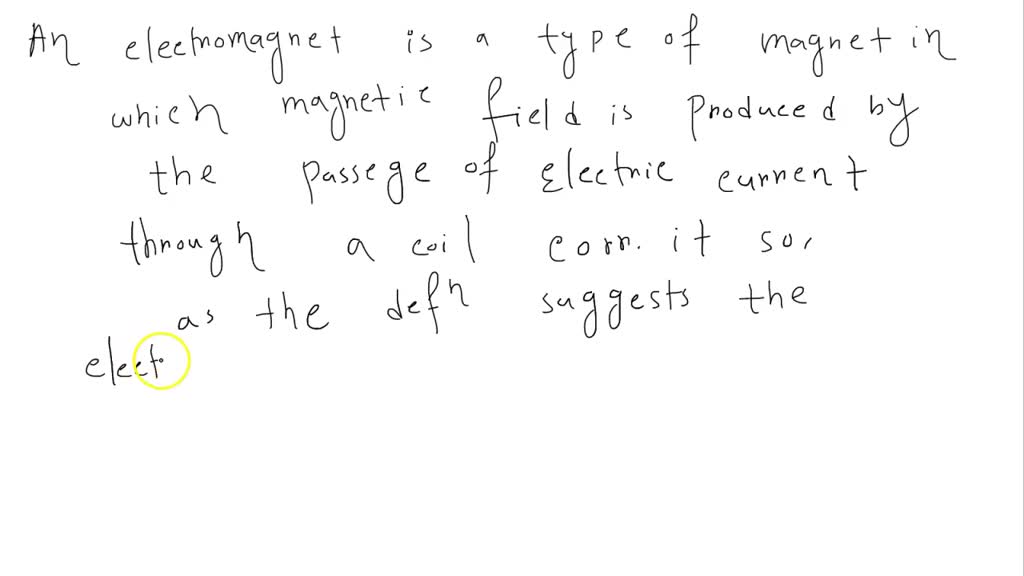 An electromagnet is a type of magnet in
which magnetic field is produced by
the passege of Electric current
through a coil corn. it so,
as the defn suggests the
elect